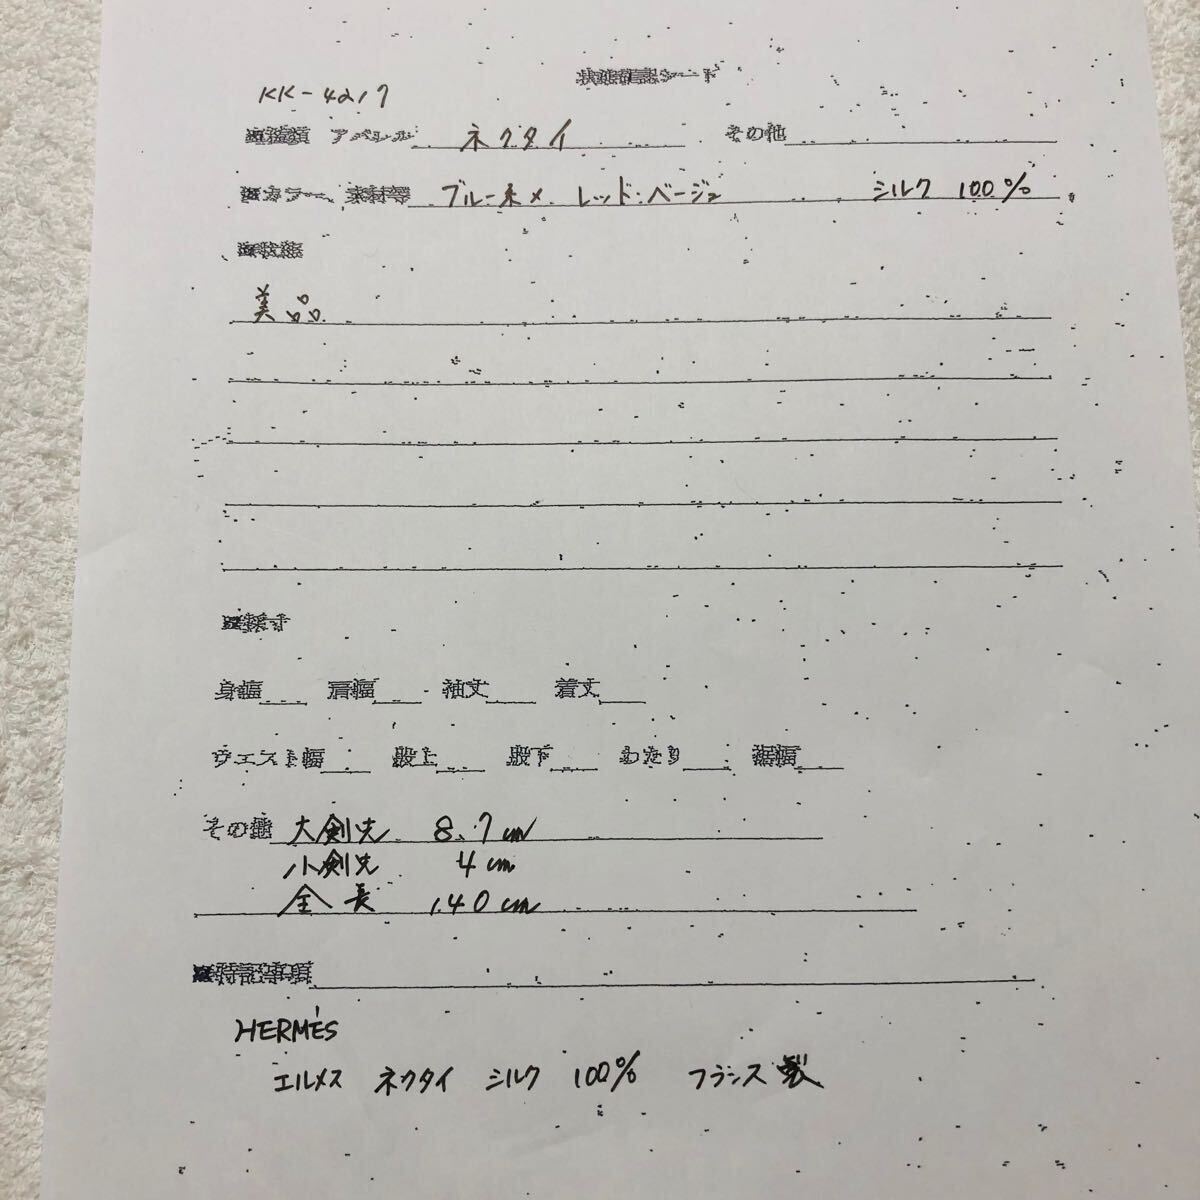 状態確認シート
KK-4217
■種類 アパレル ネクタイ その他
■カラー、素材等 ブルー系× レッド・ベージュ シルク 100%
■状態
美品
■採寸
身幅 肩幅 袖丈 着丈
ウエスト幅 股上 股下 わたり 裾幅
その他 大剣先 8.7cm
小剣先 4cm
全長 140cm
■特記事項
HERMÈS
エルメス ネクタイ シルク 100% フランス製